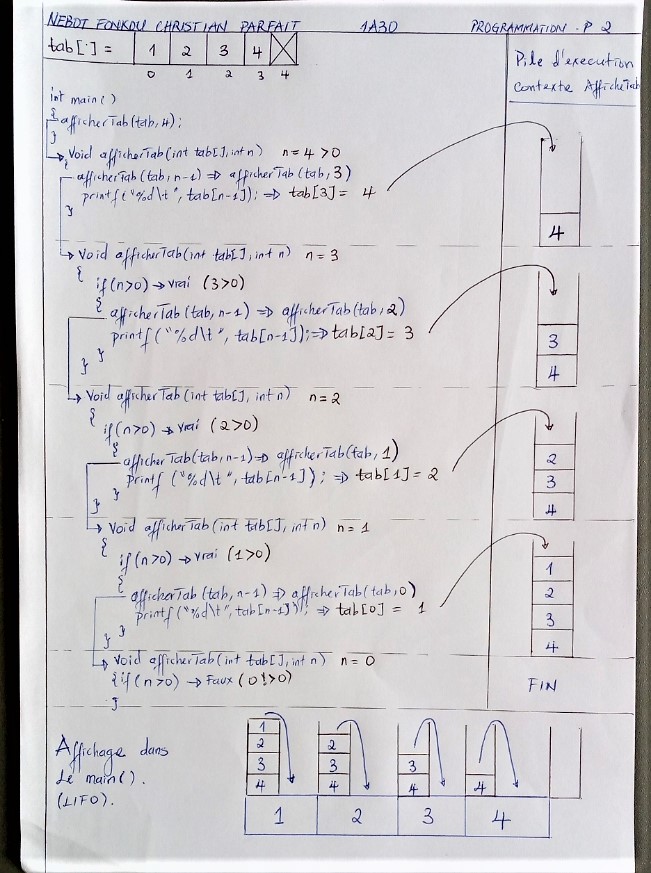 NEBOT FONKOU CHRISTIAN PARFAIT 1A30 PROGRAMMATION - P 2
tab[·] = 1 2 3 4
0 1 2 3 4
Pile d'execution
Contexte AfficheTab
int main()
{
afficherTab(tab, 4);
}
Void afficherTab(int tab[], int n) n = 4 > 0
{
afficherTab(tab, n-1) => afficherTab(tab, 3)
printf("%d\t", tab[n-1]); => tab[3] = 4
}
4
Void afficherTab(int tab[], int n) n = 3
{
if(n>0) → vrai (3>0)
{
afficherTab(tab, n-1) => afficherTab(tab, 2)
printf("%d\t", tab[n-1]); => tab[2] = 3
}
}
3
4
Void afficherTab(int tab[], int n) n = 2
{
if(n>0) → vrai (2>0)
{
afficherTab(tab, n-1) => afficherTab(tab, 1)
printf("%d\t", tab[n-1]); => tab[1] = 2
}
}
2
3
4
Void afficherTab(int tab[], int n) n = 1
{
if(n>0) → vrai (1>0)
{
afficherTab(tab, n-1) => afficherTab(tab, 0)
printf("%d\t", tab[n-1]); => tab[0] = 1
}
}
1
2
3
4
Void afficherTab(int tab[], int n) n = 0
{ if(n>0) → Faux (0!>0)
}
FIN
Affichage dans
Le main().
(LIFO).
1
2 2
3 3 3
4 4 4 4
1 2 3 4